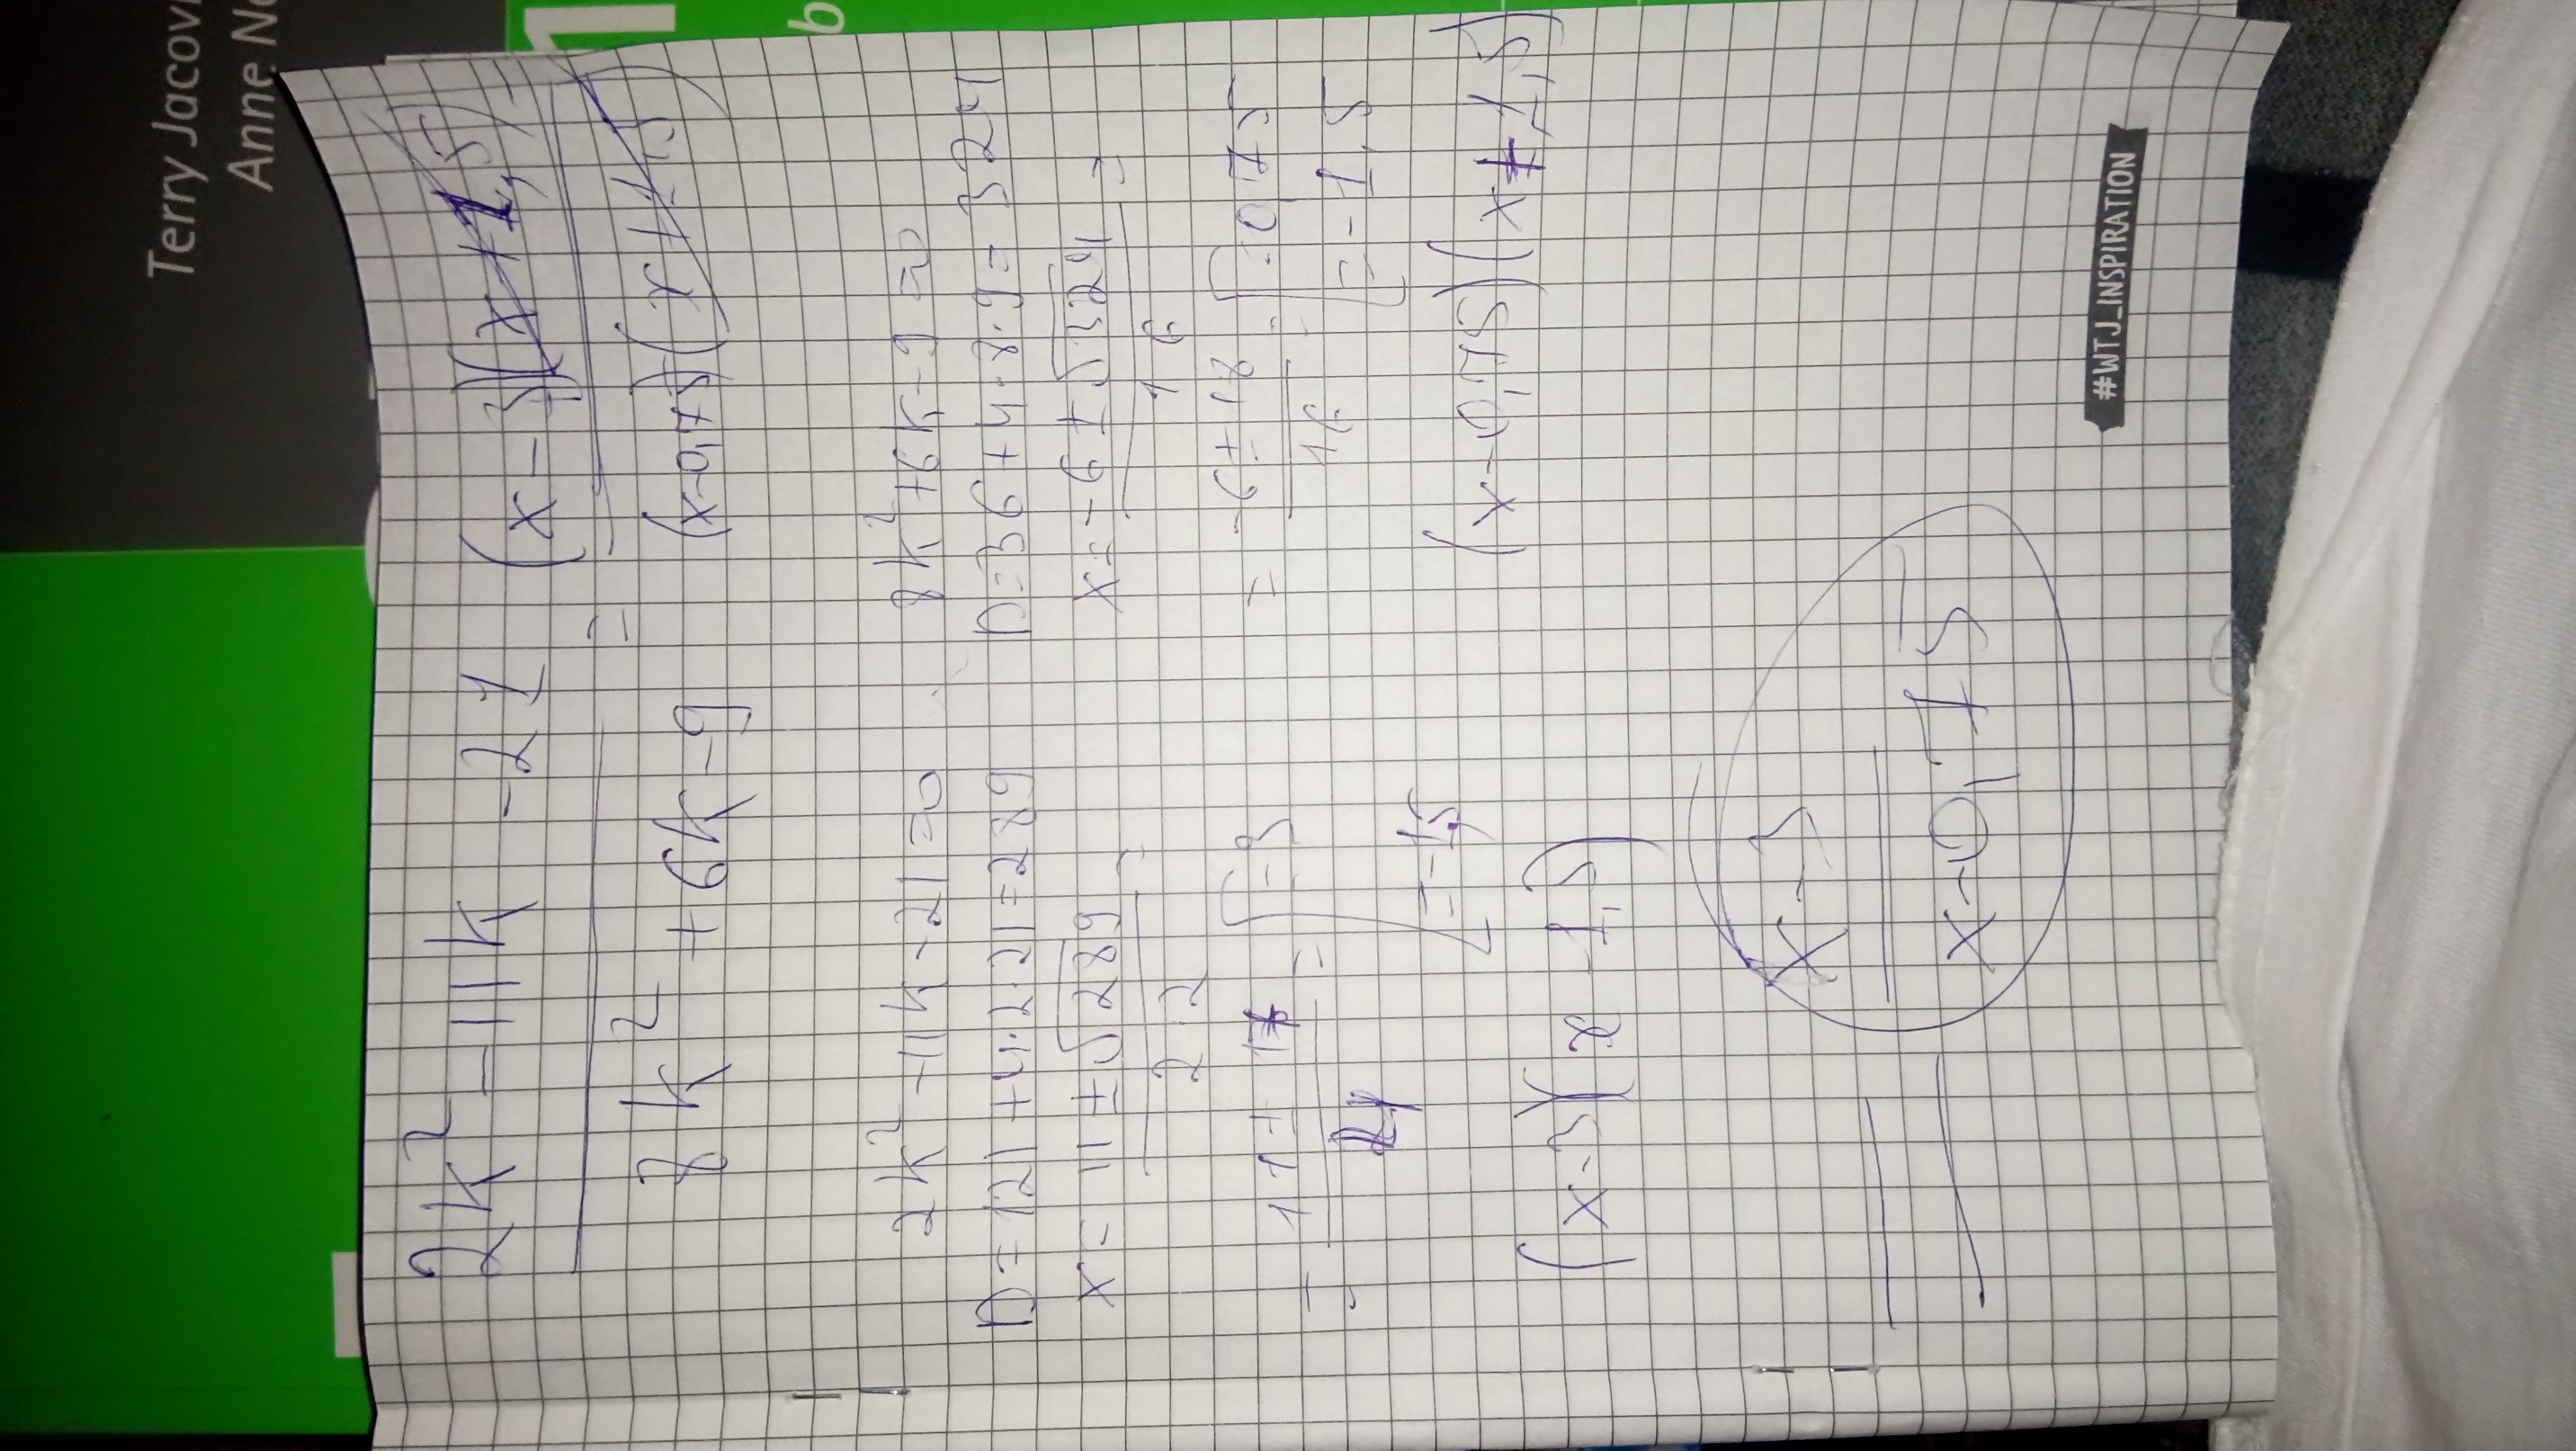 Terry Jacovi
Anne Ne
1
b
2k² - 11k - 21
8k² + 6k - 9
=
(x-3)(x+1,5)
(x-0,75)(x+1,5)
=
2k² - 11k - 21 = 0
D = 121 + 4·2·21 = 289
x = 11 ± √289 =
2·2
= 11 ± 17 =
4
= 3
= -1,5
(x-3)(x -1,5)
8k² + 6k - 9 = 0
D = 36 + 4·8·9 = 324
x = -6 ± √324 =
16
= -6 ± 18 =
16
= 0,75
= -1,5
(x-0,75)(x+1,5)
x-3
x-0,75
#WTJ_INSPIRATION